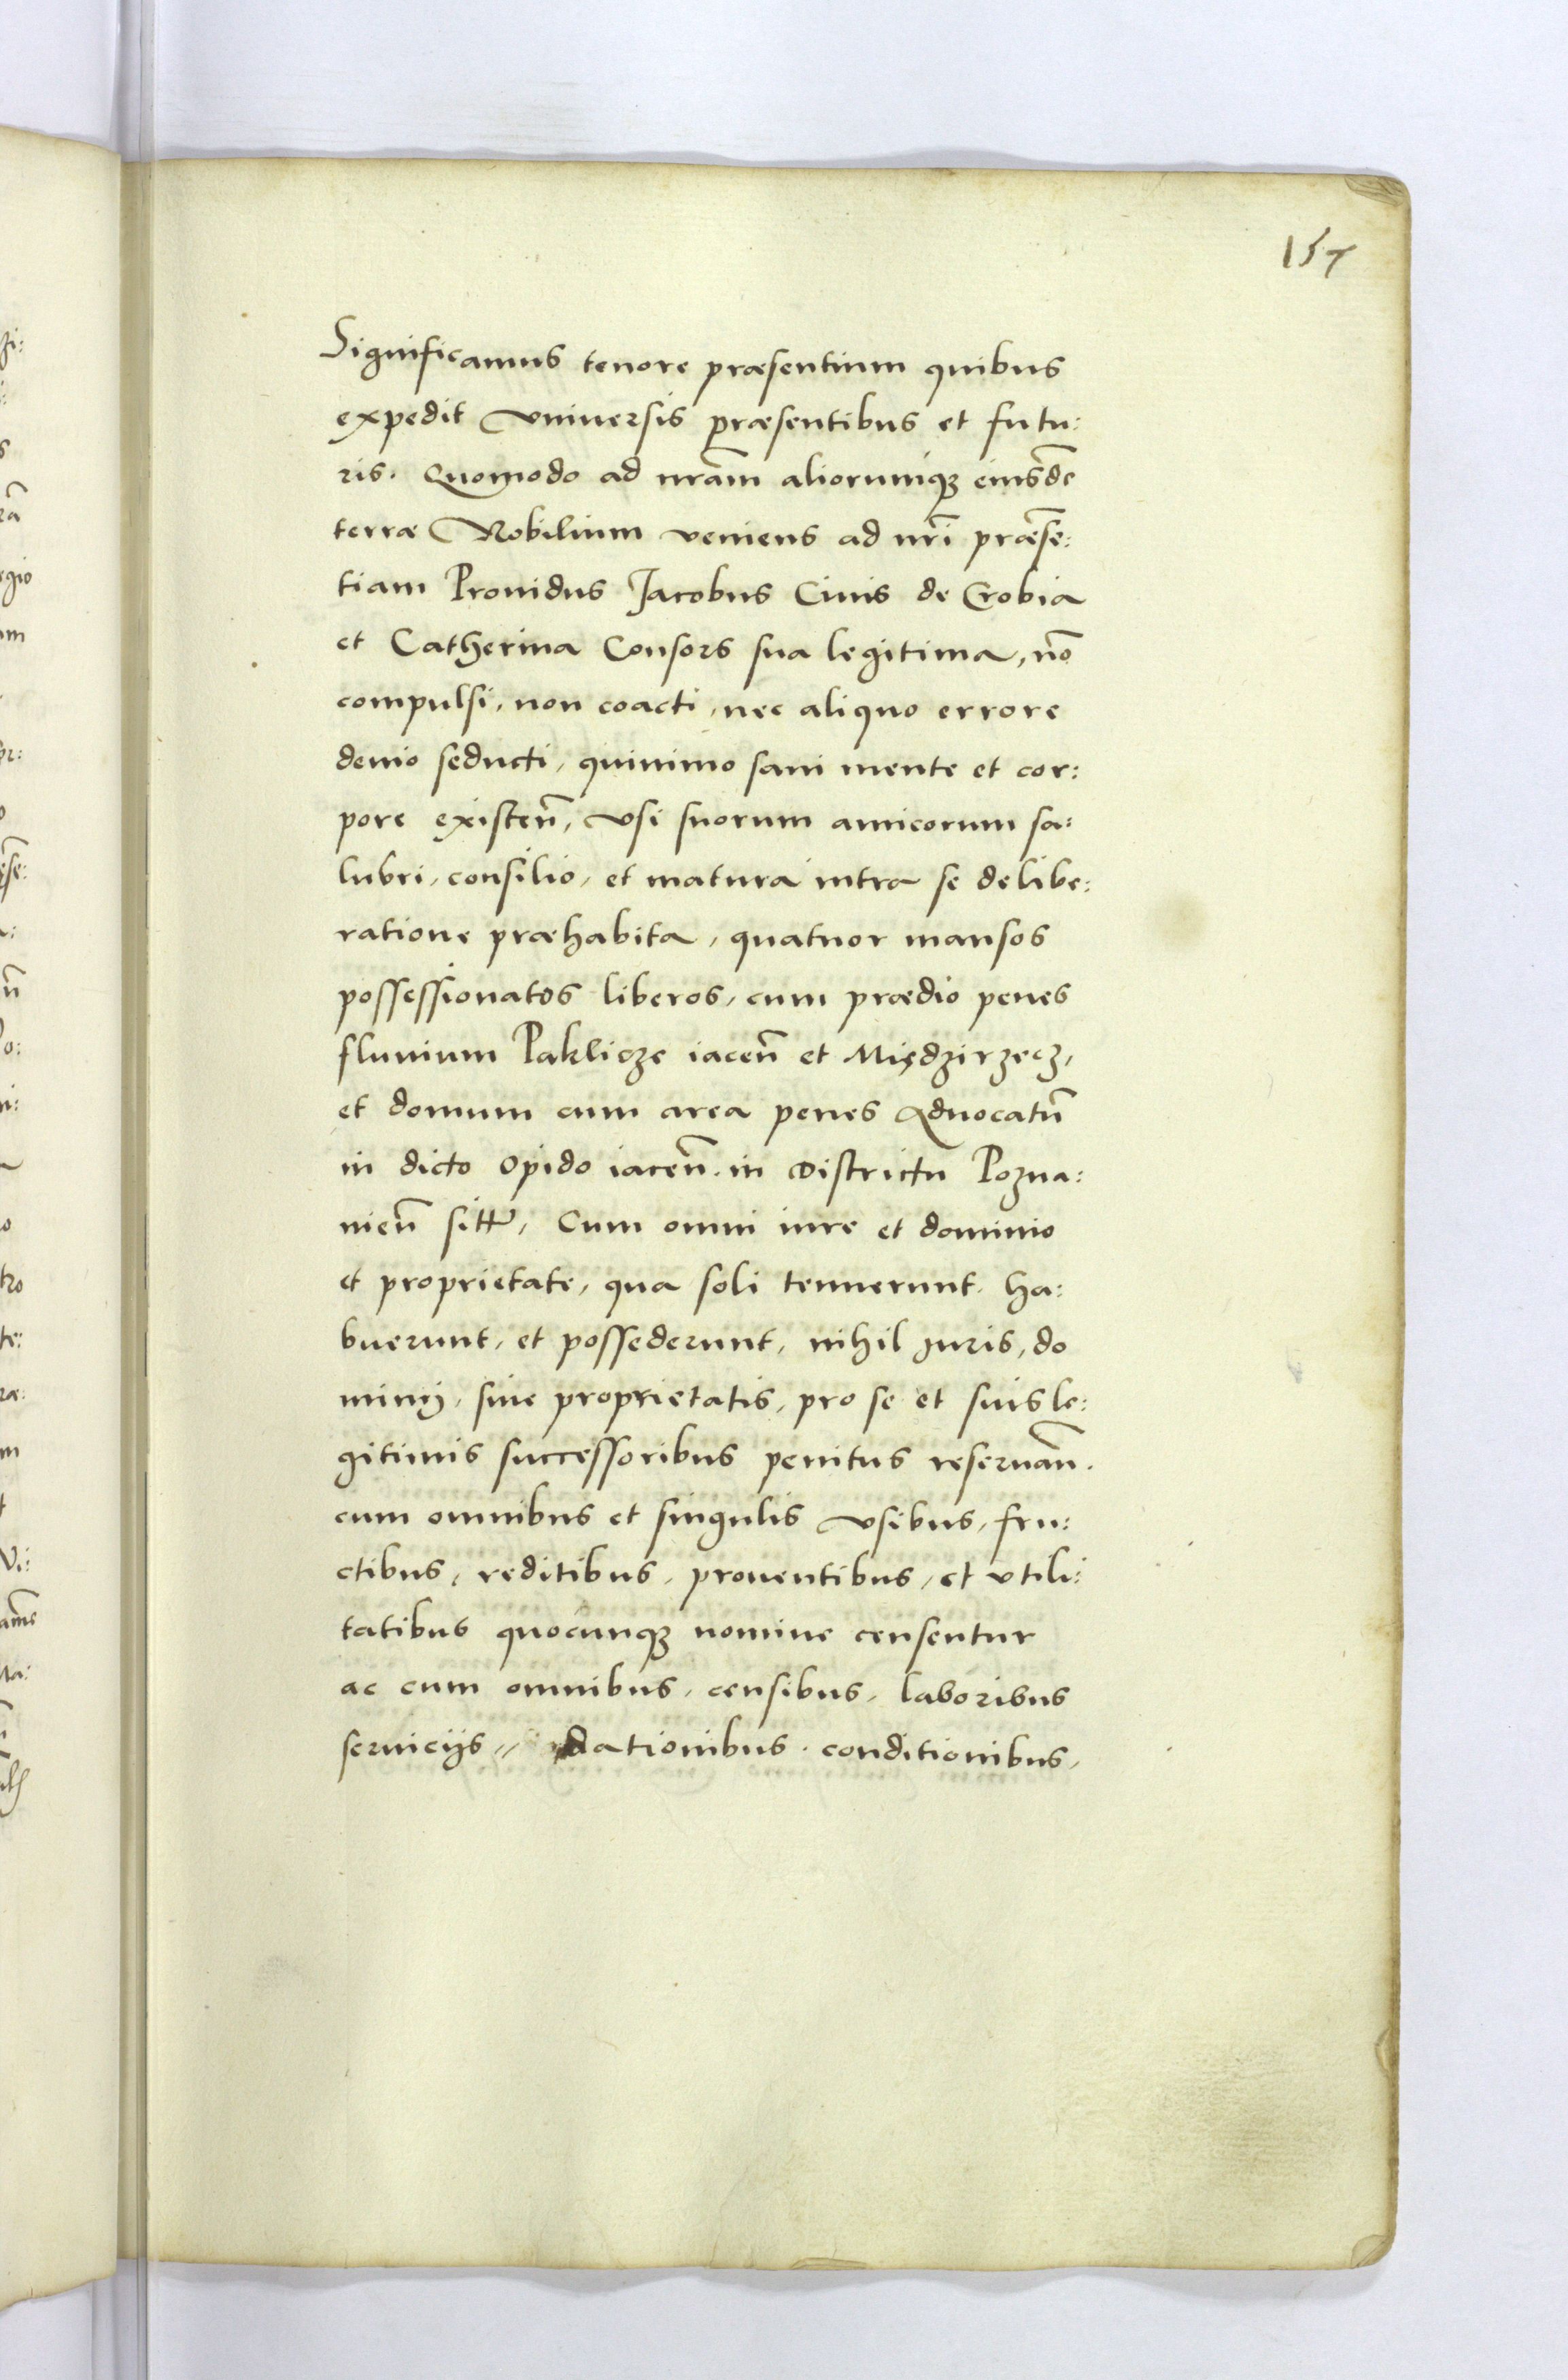 157
Significamus tenore præsentium quibus
expedit vniuersis præsentibus et futu:
ris. Quomodo ad nr̃am aliorumq₃ eiusdẽ
terræ Nobilium veniens ad nr̃i præsẽ:
tiam Prouidus Jacobus Ciuis de Crobia
et Catherina Consors sua legitima, nõ
compulsi, non coacti, nec aliquo errore
deuio seducti, quinimo sani mente et cor:
pore existeñ, vsi suorum amicorum sa:
lubri, consilio, et matura intra se delibe:
ratione præhabita, quatuor mansos
possessionatos liberos, cum prædio penes
fluuium Paklicze iaceñ et Międzirzecz,
et domum cum area penes Aduocatũ
in dicto opido iaceñ. in Districtu Pozna:
nieñ sitt̃, Cum omni iure et dominio
et proprietate, qua soli tenuerunt. ha:
buerunt, et possederunt, nihil juris, do
minij, siue proprietatis, pro se et suis le:
gitimis successoribus penitus reseruañ.
cum omnibus et singulis vsibus, fru:
ctibus, reditibus, prouentibus, et vtili:
tatibus quocunq₃ nomine censentur
ac cum omnibus, censibus, laboribus
seruicijs,, dationibus. conditionibus,